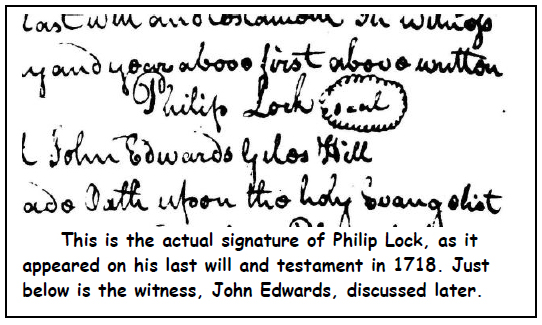 last will and testament in writings
y and year above first above written
Philip Lock seal
John Edwards Gilos Hill
ade Oath upon the holy Evangelist
This is the actual signature of Philip Lock, as it
appeared on his last will and testament in 1718. Just
below is the witness, John Edwards, discussed later.